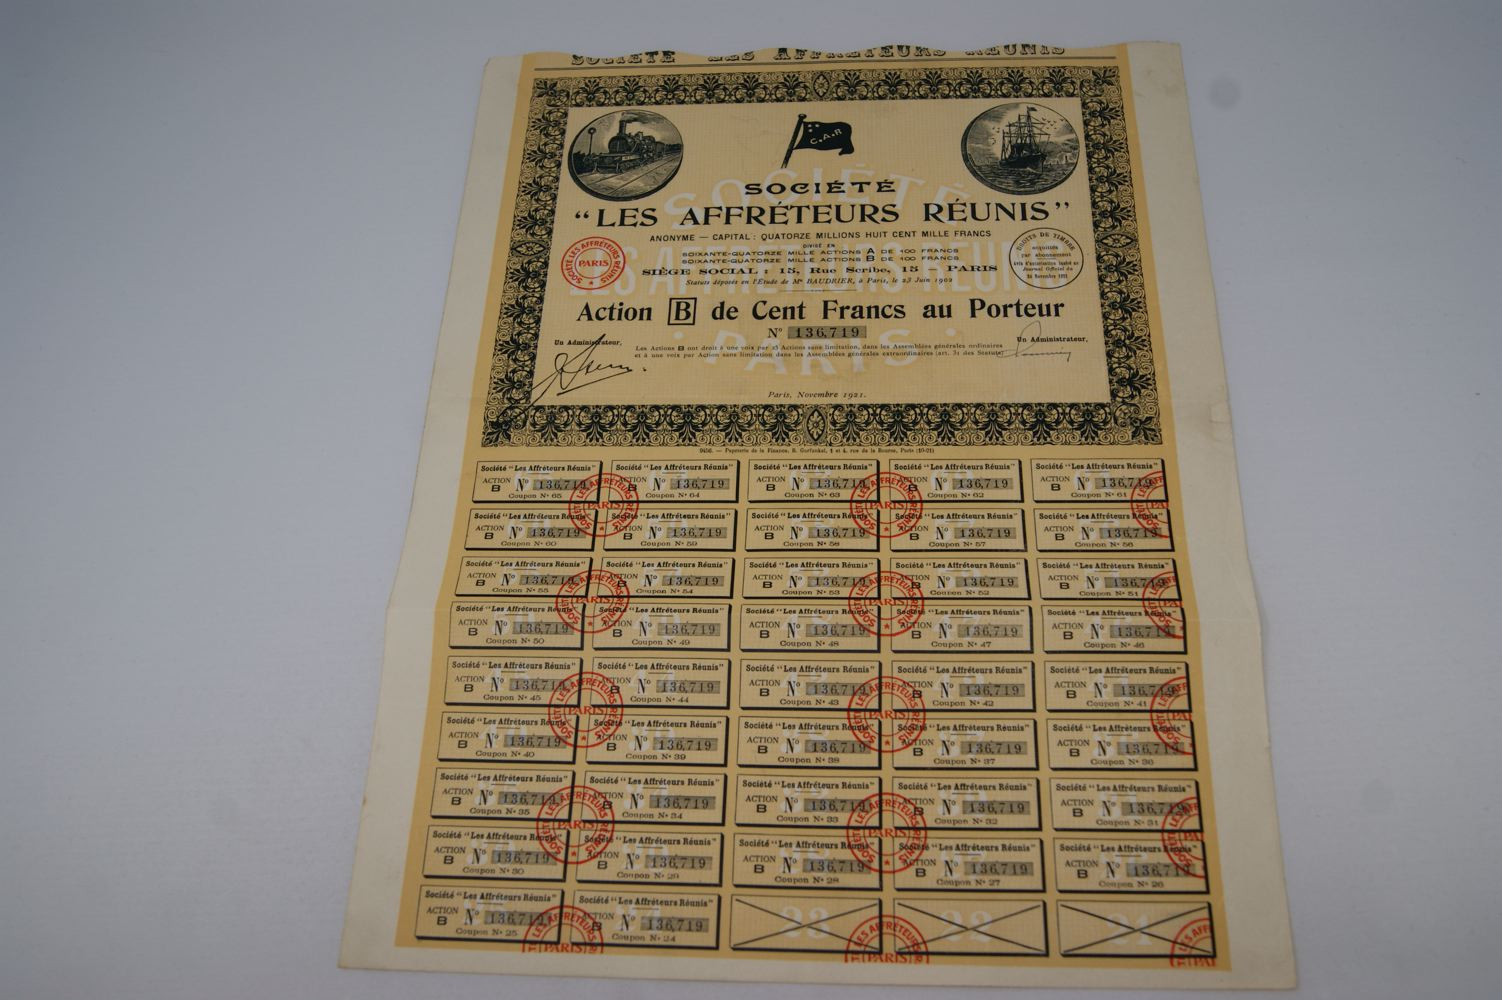 SOCIÉTÉ LES AFFRÉTEURS RÉUNIS
C.A.R
SOCIÉTÉ
"LES AFFRÉTEURS RÉUNIS"
ANONYME — CAPITAL : QUATORZE MILLIONS HUIT CENT MILLE FRANCS
DIVISÉ EN
SOIXANTE-QUATORZE MILLE ACTIONS A DE 100 FRANCS
SOIXANTE-QUATORZE MILLE ACTIONS B DE 100 FRANCS
SIÈGE SOCIAL : 15, Rue Scribe, 15 — PARIS
Statuts déposés en l'Etude de Me BAUDRIER, à Paris, le 23 Juin 1902
SOCIÉTÉ LES AFFRÉTEURS RÉUNIS
PARIS
DROITS DE TIMBRE
acquittés
par abonnement
Avis d'autorisation inséré au
Journal Officiel du
Novembre 1921
Action B de Cent Francs au Porteur
N° 136,719
Un Administrateur,
Les Actions B ont droit à une voix par 25 Actions sans limitation, dans les Assemblées générales ordinaires
et à une voix par Action sans limitation dans les Assemblées générales extraordinaires (art. 31 des Statuts)
Un Administrateur,
Paris, Novembre 1921.
9456. — Papeterie de la Finance, B. Gorfunkel, 1 et 4, rue de la Bourse, Paris (10-21)
Société "Les Affréteurs Réunis" ACTION B N° 136,719 Coupon N° 65
Société "Les Affréteurs Réunis" ACTION B N° 136,719 Coupon N° 64
Société "Les Affréteurs Réunis" ACTION B N° 136,719 Coupon N° 63
Société "Les Affréteurs Réunis" ACTION B N° 136,719 Coupon N° 62
Société "Les Affréteurs Réunis" ACTION B N° 136,719 Coupon N° 61
Société "Les Affréteurs Réunis" ACTION B N° 136,719 Coupon N° 60
Société "Les Affréteurs Réunis" ACTION B N° 136,719 Coupon N° 59
Société "Les Affréteurs Réunis" ACTION B N° 136,719 Coupon N° 58
Société "Les Affréteurs Réunis" ACTION B N° 136,719 Coupon N° 57
Société "Les Affréteurs Réunis" ACTION B N° 136,719 Coupon N° 56
Société "Les Affréteurs Réunis" ACTION B N° 136,719 Coupon N° 55
Société "Les Affréteurs Réunis" ACTION B N° 136,719 Coupon N° 54
Société "Les Affréteurs Réunis" ACTION B N° 136,719 Coupon N° 53
Société "Les Affréteurs Réunis" ACTION B N° 136,719 Coupon N° 52
Société "Les Affréteurs Réunis" ACTION B N° 136,719 Coupon N° 51
Société "Les Affréteurs Réunis" ACTION B N° 136,719 Coupon N° 50
Société "Les Affréteurs Réunis" ACTION B N° 136,719 Coupon N° 49
Société "Les Affréteurs Réunis" ACTION B N° 136,719 Coupon N° 48
Société "Les Affréteurs Réunis" ACTION B N° 136,719 Coupon N° 47
Société "Les Affréteurs Réunis" ACTION B N° 136,719 Coupon N° 46
Société "Les Affréteurs Réunis" ACTION B N° 136,719 Coupon N° 45
Société "Les Affréteurs Réunis" ACTION B N° 136,719 Coupon N° 44
Société "Les Affréteurs Réunis" ACTION B N° 136,719 Coupon N° 43
Société "Les Affréteurs Réunis" ACTION B N° 136,719 Coupon N° 42
Société "Les Affréteurs Réunis" ACTION B N° 136,719 Coupon N° 41
Société "Les Affréteurs Réunis" ACTION B N° 136,719 Coupon N° 40
Société "Les Affréteurs Réunis" ACTION B N° 136,719 Coupon N° 39
Société "Les Affréteurs Réunis" ACTION B N° 136,719 Coupon N° 38
Société "Les Affréteurs Réunis" ACTION B N° 136,719 Coupon N° 37
Société "Les Affréteurs Réunis" ACTION B N° 136,719 Coupon N° 36
Société "Les Affréteurs Réunis" ACTION B N° 136,719 Coupon N° 35
Société "Les Affréteurs Réunis" ACTION B N° 136,719 Coupon N° 34
Société "Les Affréteurs Réunis" ACTION B N° 136,719 Coupon N° 33
Société "Les Affréteurs Réunis" ACTION B N° 136,719 Coupon N° 32
Société "Les Affréteurs Réunis" ACTION B N° 136,719 Coupon N° 31
Société "Les Affréteurs Réunis" ACTION B N° 136,719 Coupon N° 30
Société "Les Affréteurs Réunis" ACTION B N° 136,719 Coupon N° 29
Société "Les Affréteurs Réunis" ACTION B N° 136,719 Coupon N° 28
Société "Les Affréteurs Réunis" ACTION B N° 136,719 Coupon N° 27
Société "Les Affréteurs Réunis" ACTION B N° 136,719 Coupon N° 26
Société "Les Affréteurs Réunis" ACTION B N° 136,719 Coupon N° 25
Société "Les Affréteurs Réunis" ACTION B N° 136,719 Coupon N° 24
23
22
21